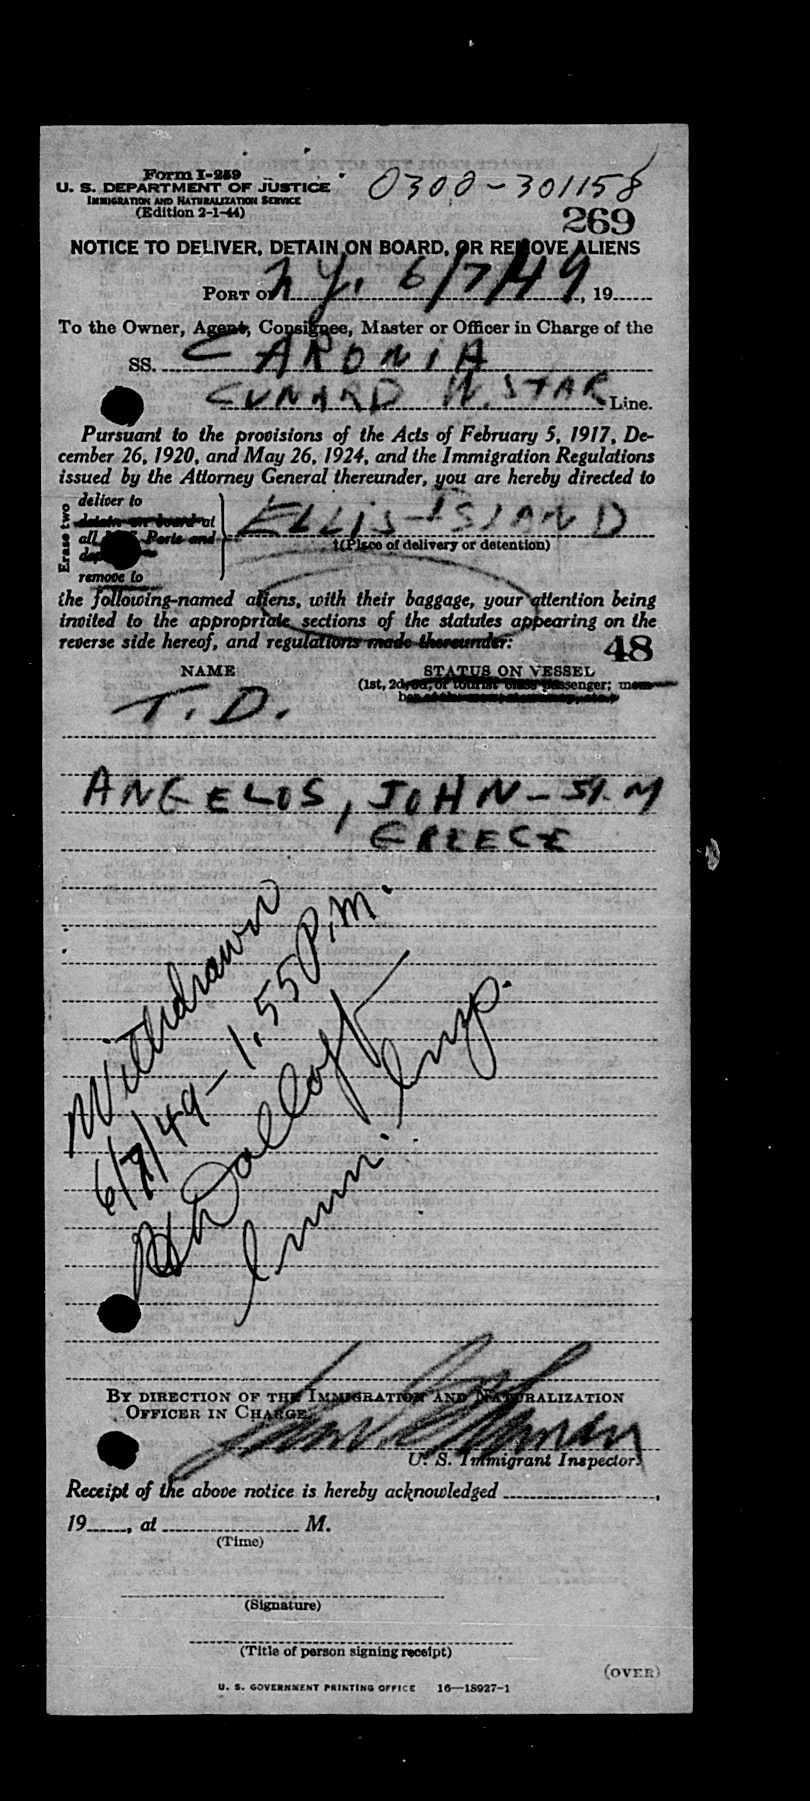 Form I-259
U. S. DEPARTMENT OF JUSTICE
IMMIGRATION AND NATURALIZATION SERVICE
(Edition 2-1-44)
0300-301158
269
NOTICE TO DELIVER, DETAIN ON BOARD, OR REMOVE ALIENS
PORT OF N.Y. 6/7/49, 19
To the Owner, Agent, Consignee, Master or Officer in Charge of the
SS. CARONIA
CUNARD W. STAR Line.
Pursuant to the provisions of the Acts of February 5, 1917, De-
cember 26, 1920, and May 26, 1924, and the Immigration Regulations
issued by the Attorney General thereunder, you are hereby directed to
Erase two
deliver to
detain on board at
all U.S. Ports and
remove to
ELLIS-ISLAND
†(Place of delivery or detention)
the following-named aliens, with their baggage, your attention being
invited to the appropriate sections of the statutes appearing on the
reverse side hereof, and regulations made thereunder:
48
NAME STATUS ON VESSEL
(1st, 2d, 3d, or tourist class passenger; mem-
T. D.
ANGELOS, JOHN - 51. M
GREECE
Withdrawn
6/7/49 - 1.55 P.M.
Imm. Insp.
BY DIRECTION OF THE IMMIGRATION AND NATURALIZATION
OFFICER IN CHARGE.
U. S. Immigrant Inspector.
Receipt of the above notice is hereby acknowledged
19, at M.
(Time)
(Signature)
(Title of person signing receipt)
(OVER)
U. S. GOVERNMENT PRINTING OFFICE 16—18927-1